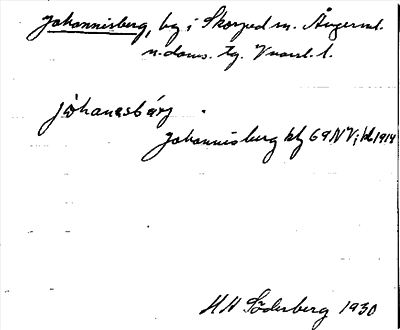 Johannisberg, by i Skorped sn. Ångerml.
n. doms. tg. Vnorrl. l.
johanesbærj
Johannisberg kbg 69 NV; kl 1914
H H Söderberg 1930